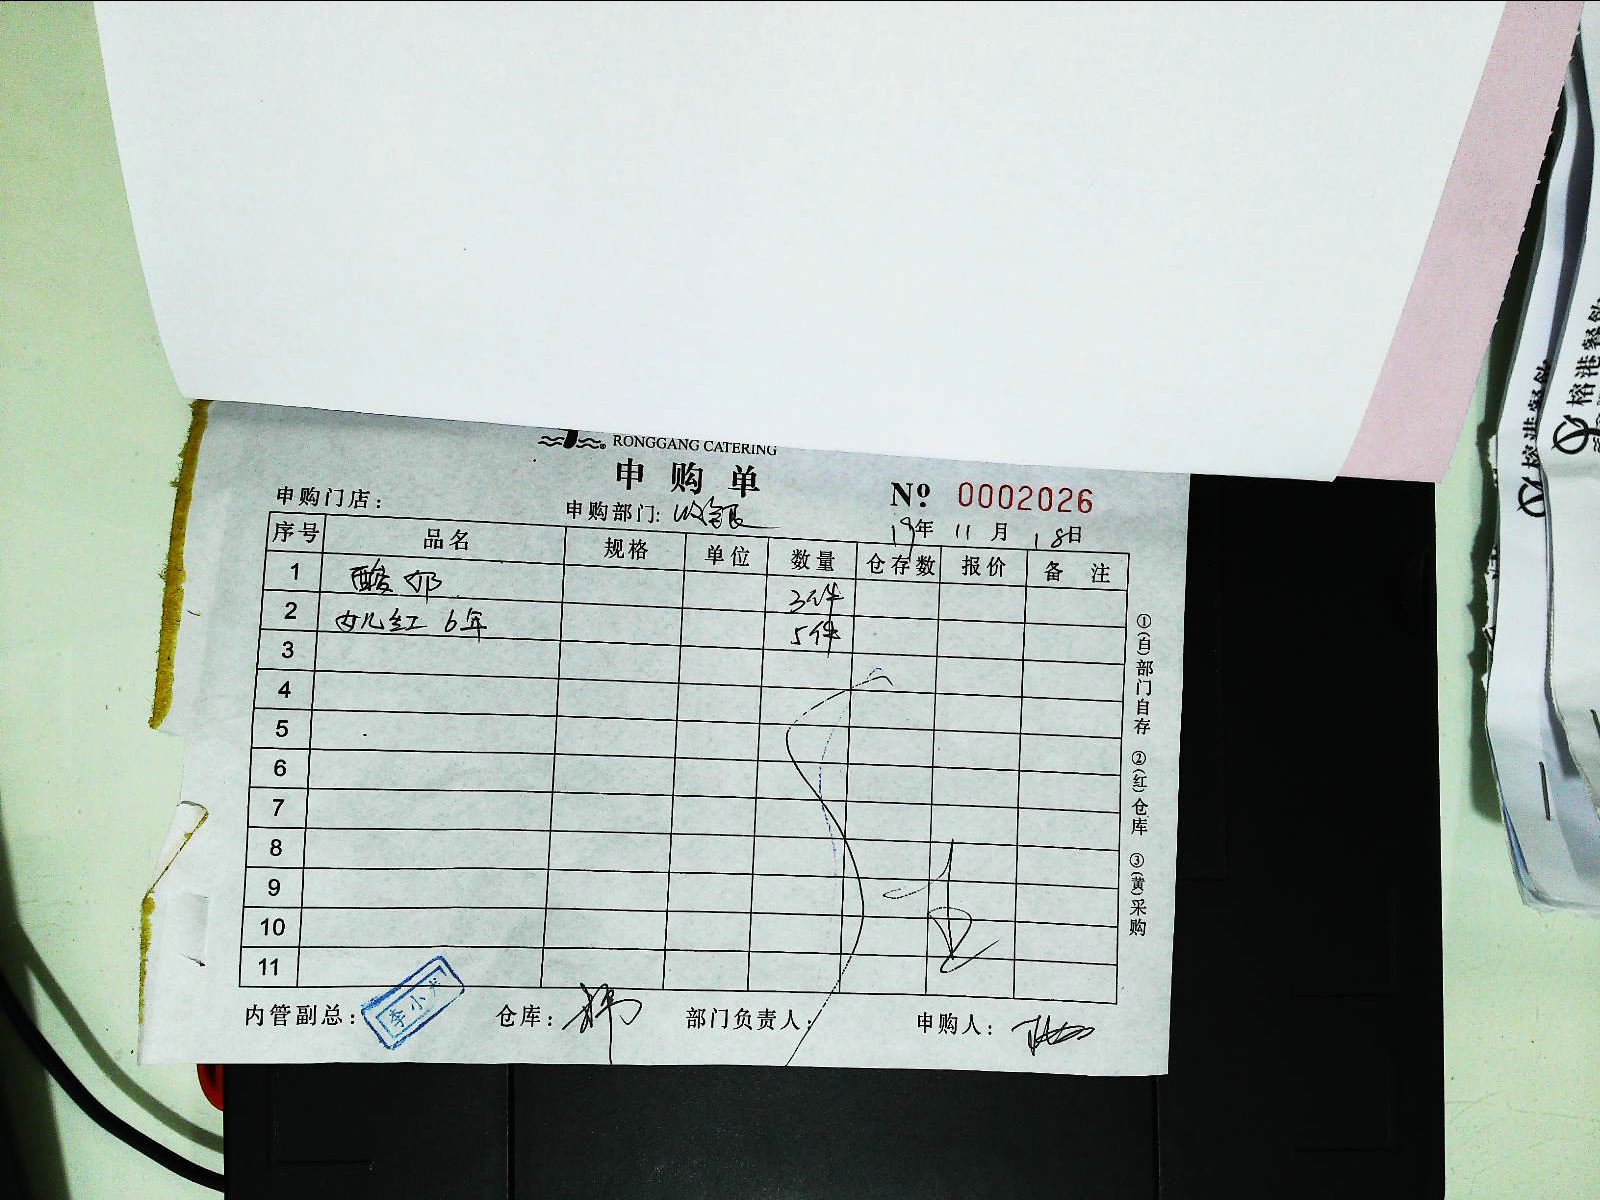 RONGGANG CATERING
申购单
Nº 0002026
申购门店：
申购部门: 收银
19年 11月 18日
序号 品名 规格 单位 数量 仓存数 报价 备注
1 酸奶 3件
2 女儿红 6年 5件
3
4
5
6
7
8
9
10
11
内管副总： 李小
仓库：
部门负责人：
申购人：
①(白)部门自存 ②(红)仓库 ③(黄)采购
榕港餐饮
榕港餐饮